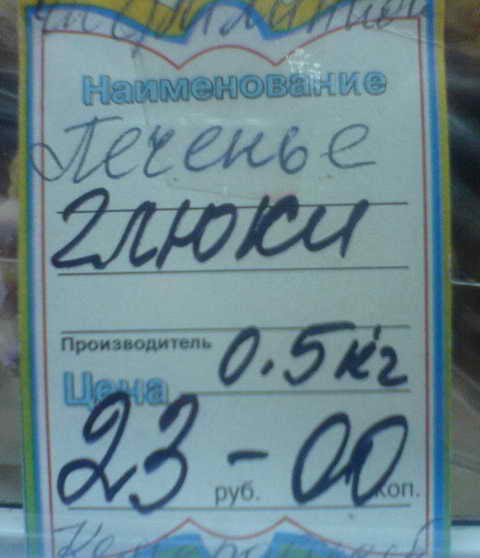 Наименование
Печенье
глюки
Производитель
0.5 кг
Цена
23-00
руб. коп.